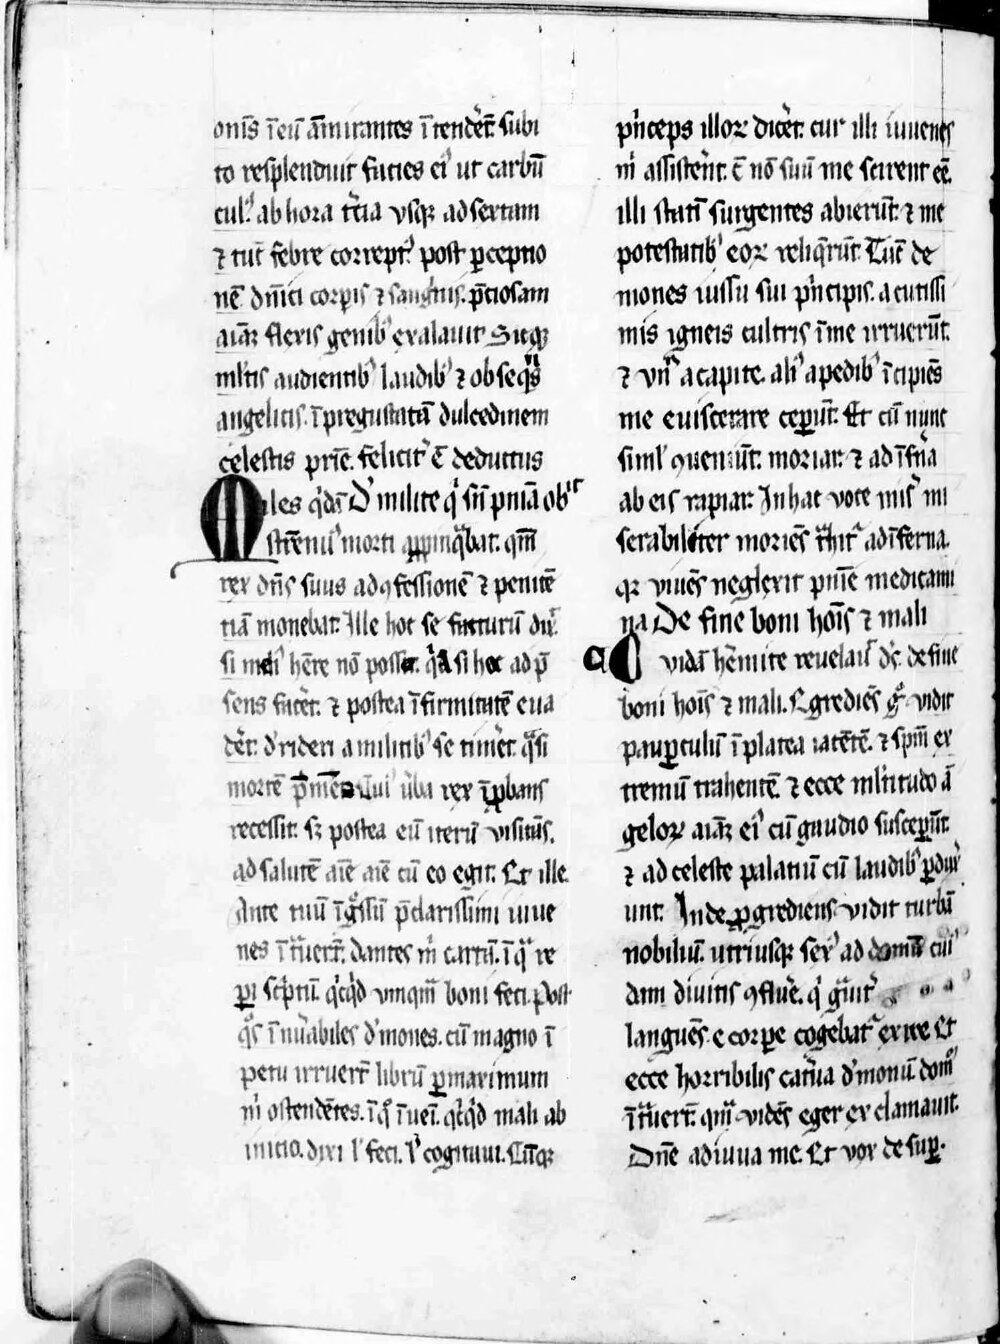 onis̄ ī eū ām̄irantes ītender̄t subi
to resplenduit facies eiꝰ ut carbū
culꝰ ab hora t̄cia vsqꝫ ad sextam
⁊ tūc febre correptꝰ post ꝑceptio
nē dn̄ici corpis ⁊ sangīnis. p̄ciosam
aīaꝫ flexis genibꝰ exalauit Sicqꝫ
ml̄tis audientibꝰ laudibꝰ ⁊ obseqͥis
angelicis. ī pregustatā dulcedinem
celestis pr̄ie. felicit̉ ē deductus
Miles qͥdā D' milite qͥ sn̄ pn̄ia obijt
strēnuꝰ morti appinqͣbat. qm̄
rex dn̄s suus ad ꝯfessionē ⁊ penitē
tiā monebat. Ille hoc se facturū dix̉.
si medi hēre nō posset. qͥa si hoc ad p̄
sens facēt. ⁊ postea īfirmitatē eua
dēt. d'rideri a militibꝰ se timēt. qͣsi
mortē p̄ Cuiꝰ ūba rex īprobans
recessit. sꝫ postea eū iterū visitās.
ad salutē aīe aīe cū eo egit. Et ille.
Ante tuū īgͣssū p̄clarissimi iuue
nes īt̄uert̄. dantes m̄ cartā. ī qͣ re
pi sc̄ptū. qͥcqͥd vnqͣm boni feci. Post
qͦs īnūabiles d'mones. cū magno ī
petu irruert̄ librū ꝑmaximum
m̄ ostendētes. ī qͦ īueī. qͥcqͥd mali ab
inicio. dixi l' feci. l' cogitaui. Cūqꝫ
pͥnceps illoꝝ dicēt. cur illi iuuenes
m̄ assistēnt. ē nō suū me scirent eē.
illi statī surgentes abierūt. ⁊ me
potestatibꝰ eoꝝ reliqͥrūt. Tūc de
mones iussu sui pͥncipis. acutissi
mis igneis cultris ī me irruerūt.
⁊ vnꝰ a capite. aliꝰ a pedibꝰ īcipiēs
me euiscerare ceperūt. Et cū nunc
siml' ꝯuenīūt. moriar. ⁊ ad īfna
ab eis rapiar. In hac voce misͥ mi
serabiliter moriēs t̄hit̉ ad īferna.
qꝫ viuēs neglexit pn̄ie medicami
na De fine boni hoīs ⁊ mali
Cuidā hēmite reuelauͥ dſ. de fine
boni hoīs ⁊ mali. Egrediēs gͦ vidit
pauꝑculū ī platea iacētē. ⁊ spm̄ ex
tremū trahentē ⁊ ecce ml̄titudo ā
geloꝝ aīaꝫ eiꝰ cū gaudio susceperūt.
⁊ ad celeste palatiū cū laudibꝰ ꝑdux̉
unt. Inde ꝓgrediens vidit turbā
nobiliū. utriusqꝫ sexꝰ ad domū cuiꝰ
dam diuitis ꝯfluē. qͥ gͣuit̉
languēs e corpe cogebat̉ exire Et
ecce horribilis catūa d'monū domū
īt̄uert̄. qͣm vidēs eger exclamauit.
Dn̄e adiuua me. Et vox desuꝑ.